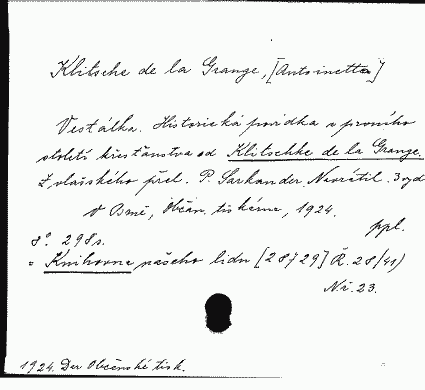 Klitsche de la Grange, [Antoinetta]
Vestálka. Historická povídka z prvního
století křesťanstva od Klitschke de la Grange.
Z vlašského přel. P. Sarkander Navrátil. 3 vyd
V Brně, Občan. tiskárna, 1924.
ppl.
8°. 298 s.
= Knihovna našeho lidu [28/29] Ř. 28/41)
N. i. 23.
1924. Dar Občanské tisk.